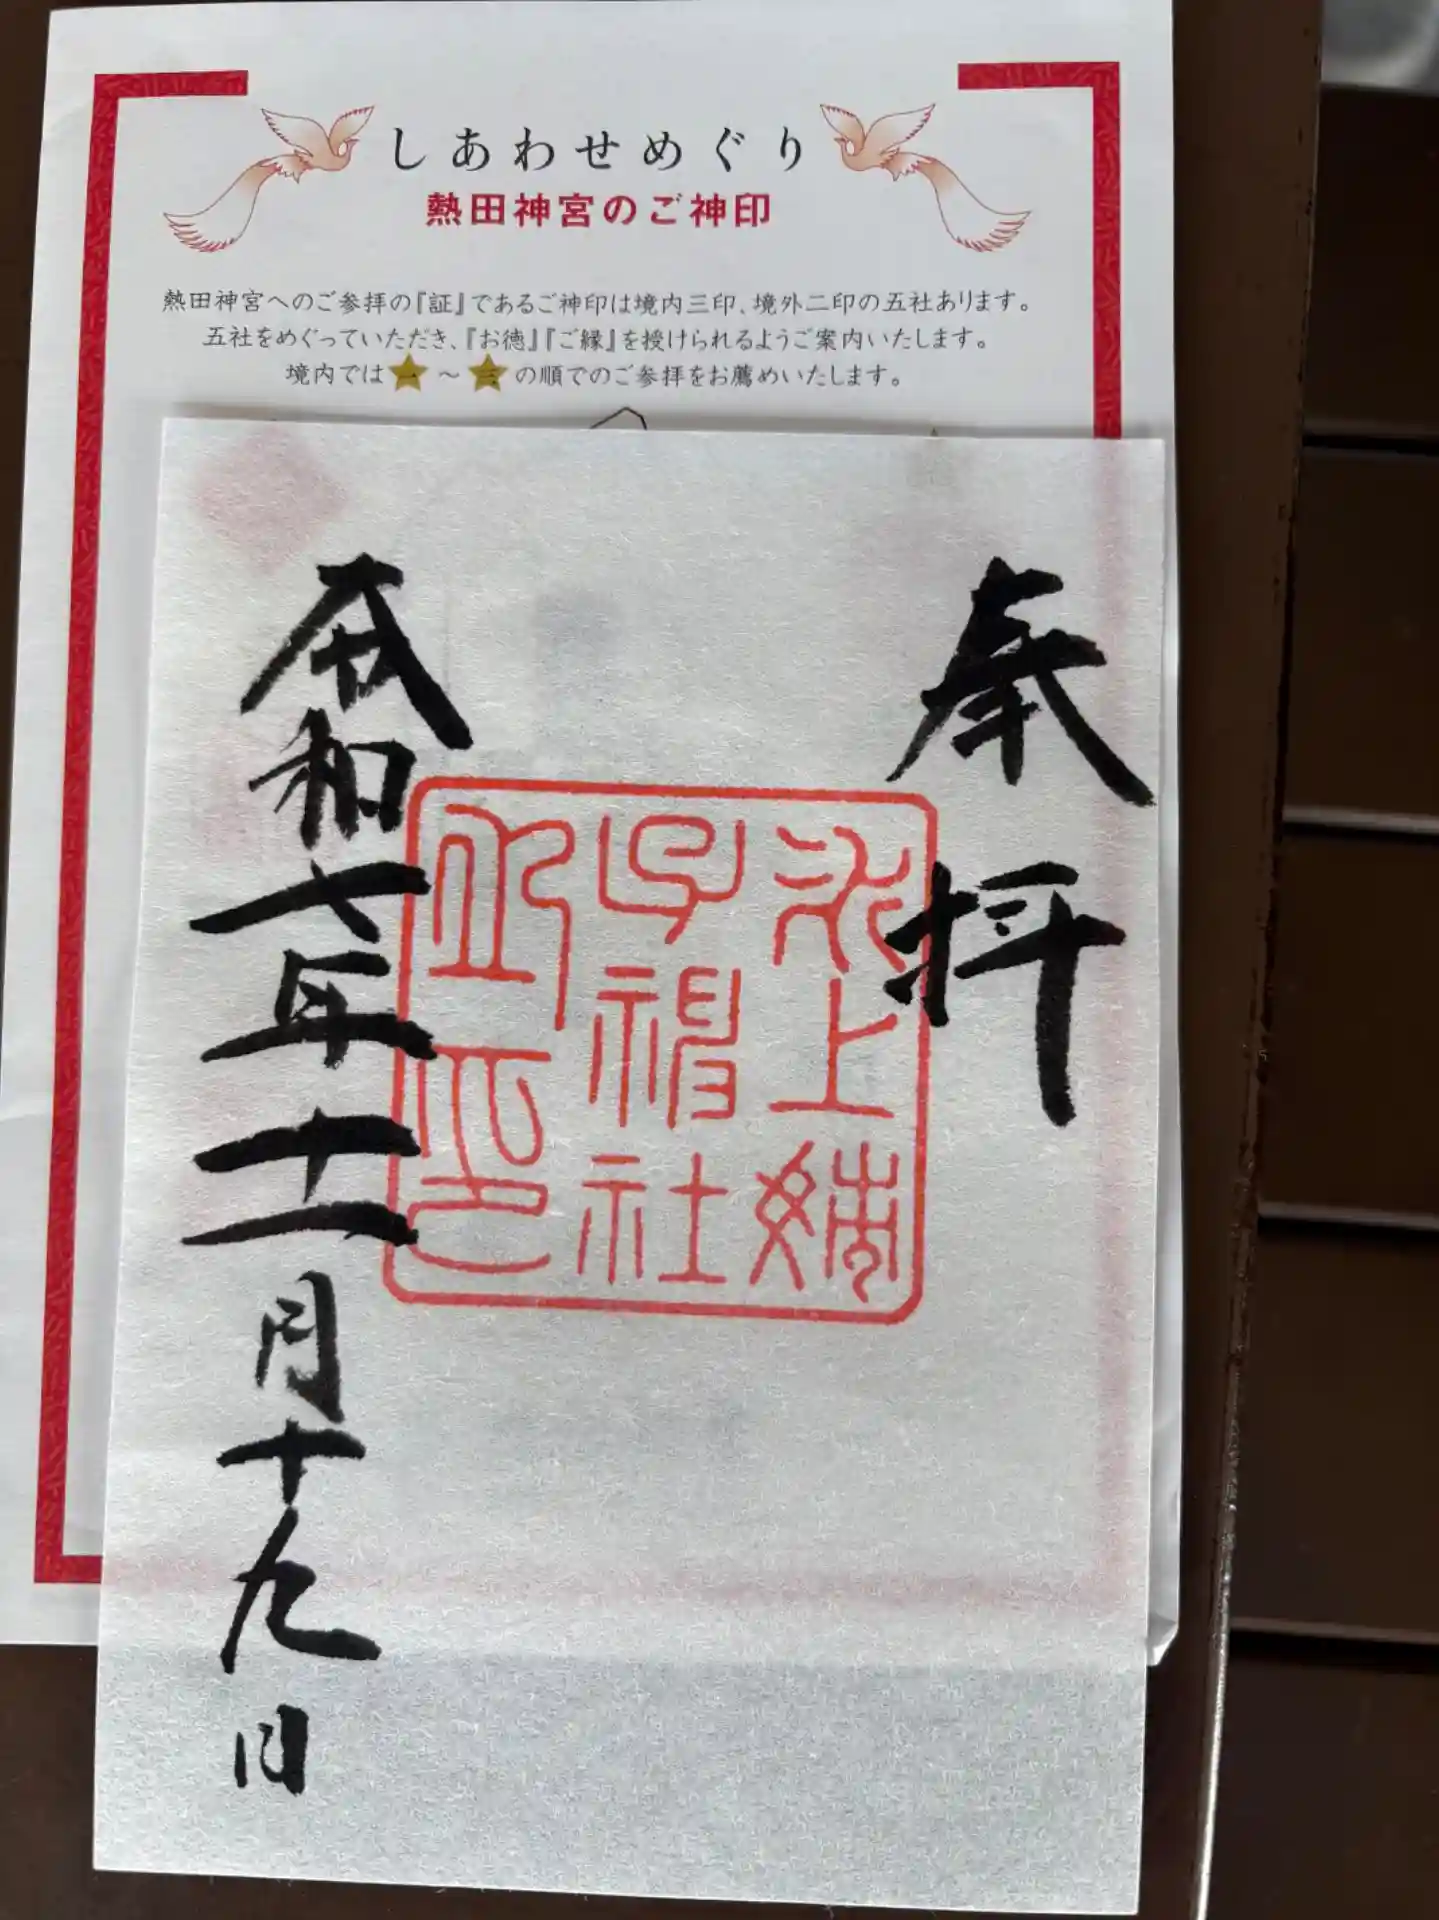 しあわせめぐり
熱田神宮のご神印
熱田神宮へのご参拝の『証』であるご神印は境内三印、境外二印の五社あります。
五社をめぐっていただき、『お徳』『ご縁』を授けられるようご案内いたします。
境内では一～三の順でのご参拝をお薦めいたします。
奉拝
氷上姉
子神社
之印
令和七年十一月十九日